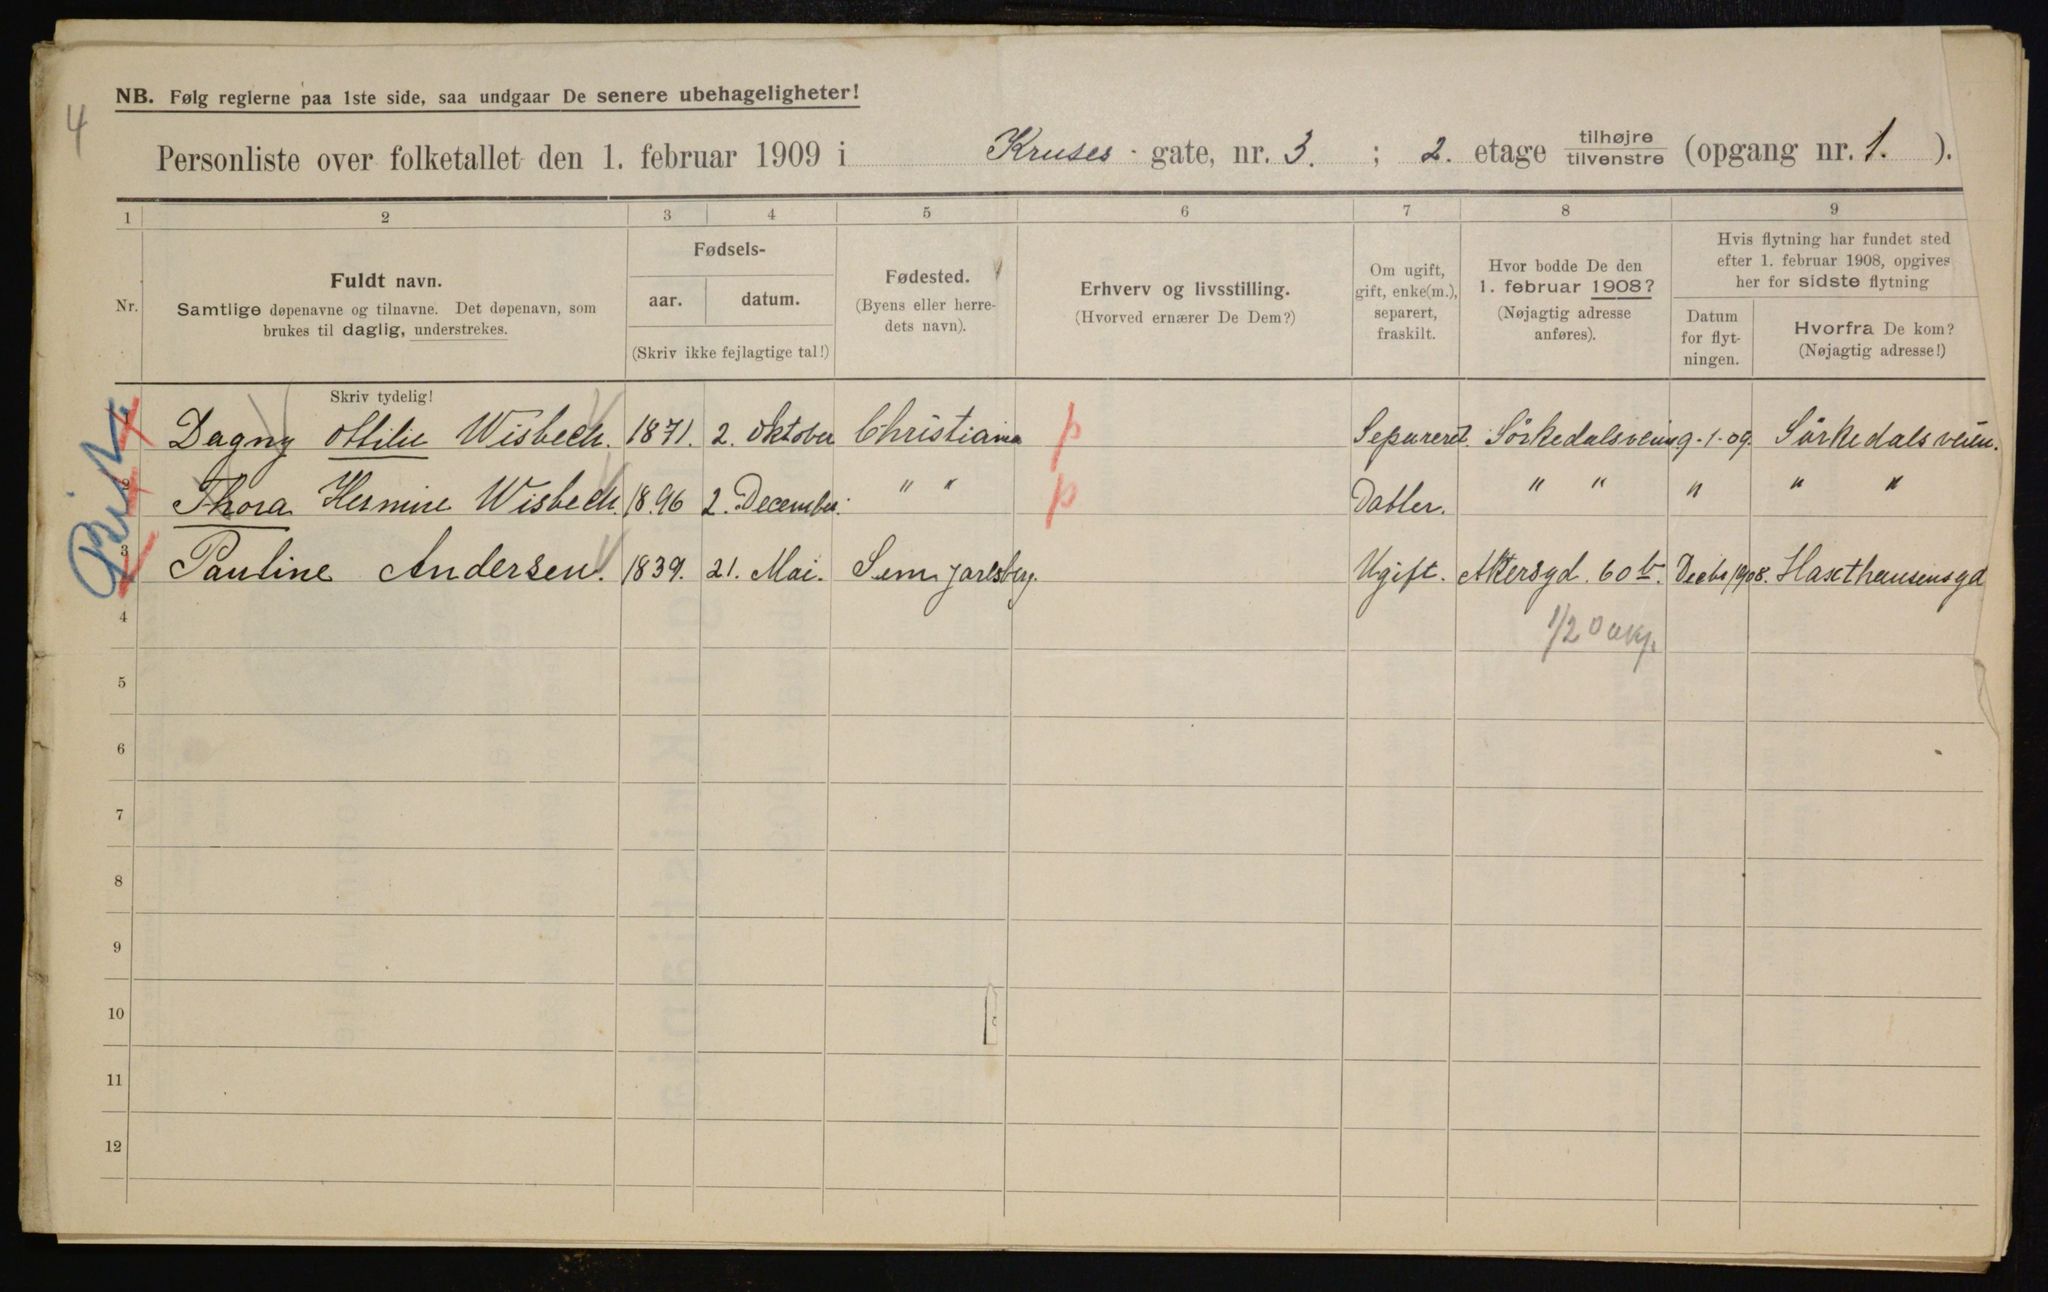 4
NB. Følg reglerne paa 1ste side, saa undgaar De senere ubehageligheter!
Personliste over folketallet den 1. februar 1909 i Kruses - gate, nr. 3. ; 2. etage tilhøjre / tilvenstre (opgang nr. 1. ).
1 2 3 4 5 6 7 8 9
Nr.
Fuldt navn.
Samtlige døpenavne og tilnavne. Det døpenavn, som
brukes til daglig, understrekes.
Fødsels-
aar. datum.
(Skriv ikke fejlagtige tal!)
Fødested.
(Byens eller herre-
dets navn).
Erhverv og livsstilling.
(Hvorved ernærer De Dem?)
Om ugift,
gift, enke(m.),
separert,
fraskilt.
Hvor bodde De den
1. februar 1908?
(Nøjagtig adresse
anføres).
Hvis flytning har fundet sted
efter 1. februar 1908, opgives
her for sidste flytning
Datum
for flyt-
ningen.
Hvorfra De kom?
(Nøjagtig adresse!)
Skriv tydelig!
1 Dagny Ottilie Wisbech. 1871. 2. Oktober Christiania p Separeret. Sørkedalsveien 9-1-09. Sørkedalsveien.
2 Thora Hermine Wisbech. 1896 2. December. " " p Datter. " " " " "
3 Pauline Andersen. 1839. 21. Mai. Sem Jarlsberg. Ugift. Akersgd. 60 b. Decbr 1908. Haxthausensgd
4
5
6
7
8
9
10
11
12